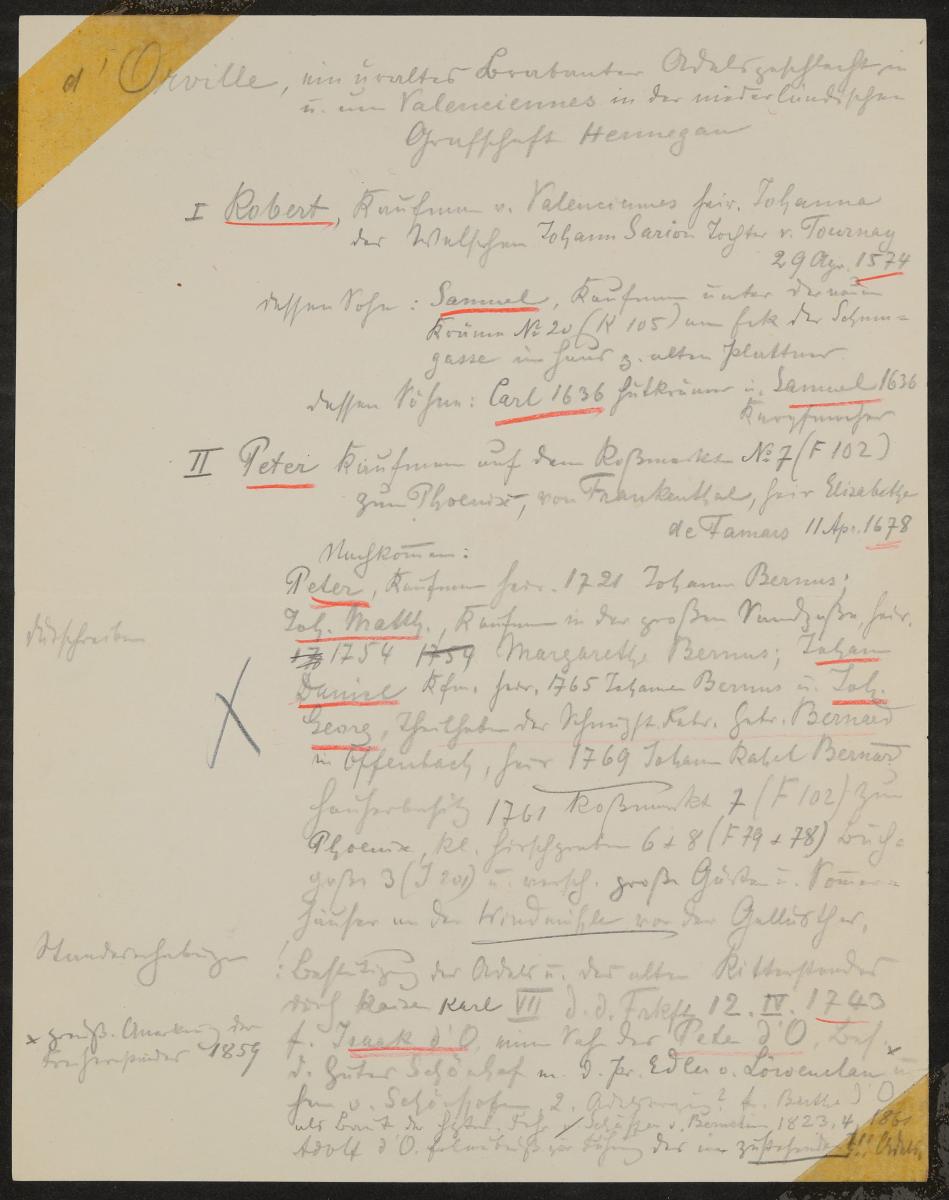 d'Orville, ein uraltes Brabanter Adelsgeschlecht in
u. um Valenciennes in der niederländischen
Grafschaft Hennegau
I Robert, Kaufmann v. Valenciennes heir. Johanna
der Welschen Johann Sarion Tochter v. Tournay
29 Apr. 1574
dessen Sohn: Samuel, Kaufmann unter der neuen
Kräme No 20 (K 105) am Eck der Schnur-
gasse im Haus z. alten Plattner
dessen Söhne: Carl 1636 Hutkrämer u. Samuel 1636
Knopfmacher
II Peter Kaufmann auf dem Roßmarkte No 7 (F 102)
zum Phoenix, von Frankenthal, heir Elisabethe
de Famars 11 Apr. 1678
Nachkommen:
Peter, Kaufmann heir. 1721 Johanna Bernus;
Joh. Matth., Kaufmann in der großen Sandgasse, heir.
1754 1759 Margarethe Bernus; Johann
Daniel Kfm. heir. 1765 Johanna Bernus u. Joh.
Georg, Theilhaber der Schnupft. Fabr. Gebr. Bernard
in Offenbach, heir 1769 Johann Rahel Bernard
Häuserbesitz 1761 Roßmarkt 7 (F 102) zum
Phoenix, kl. Hirschgraben 6 + 8 (F 79 + 78) Buch-
gasse 3 (J 201) u. versch. große Gärten u. Sommer-
häuser an der Windmühle vor der Gallusthor.
Standeserhebung
: Bestätigung des Adels u. des alten Ritterstandes
durch Kaiser Karl VII d. d. Frkft 12. IV. 1743
x preuß. Anerkennung des
Freiherrnstandes 1859
f. Isaak d'O, einen Sohn des Peter d'O, Bes.
d. Gutes Schönhof m. d. Pr. Edler v. Löwenclau u
Herr v. Schönhofen 2. f. Bertha d'O
als Braut des Frhr. v. Bernstein 1823. 4, 1861
Adolf d'O. zur Führung des ihm zustehenden!!! Adels.